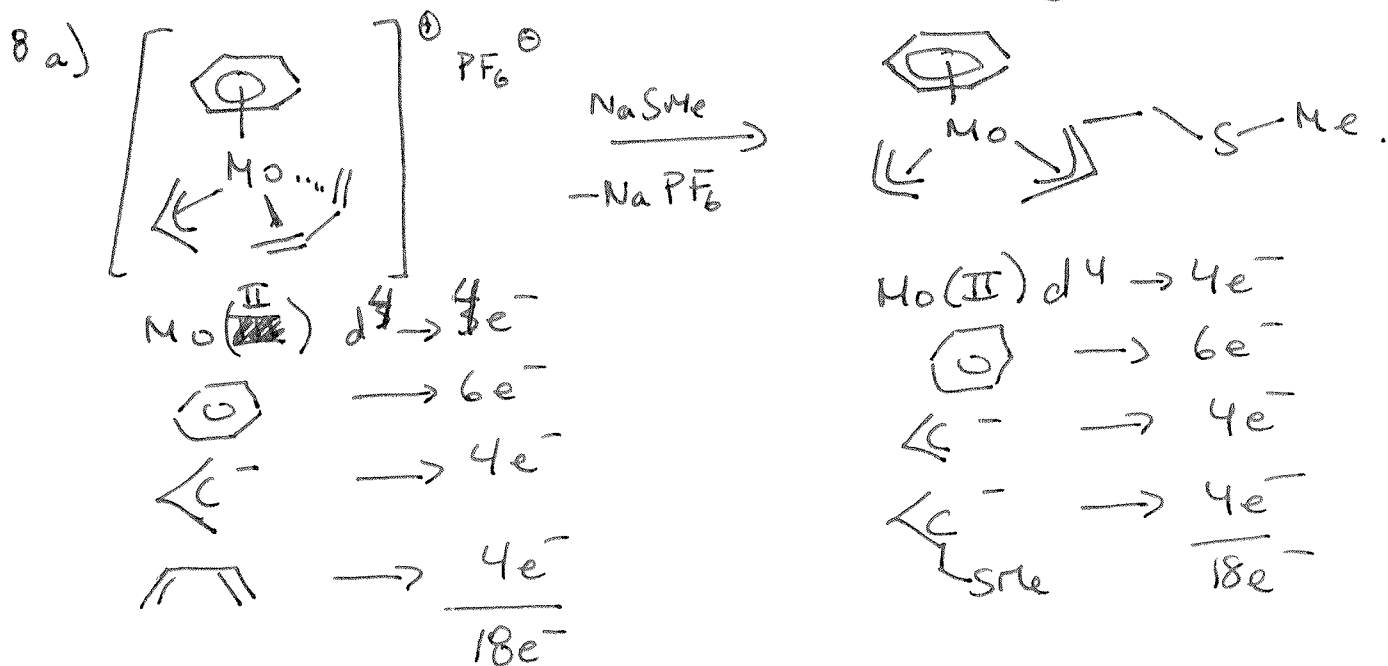 8 a)
⊕
PF₆ ⊖
Mo
NaSMe
-NaPF₆
Mo
S-Me.
Mo(II) d⁴ → 4e⁻
→ 6e⁻
C⁻ → 4e⁻
→ 4e⁻
18e⁻
Mo(II) d⁴ → 4e⁻
→ 6e⁻
C⁻ → 4e⁻
C⁻ → 4e⁻
SMe
18e⁻